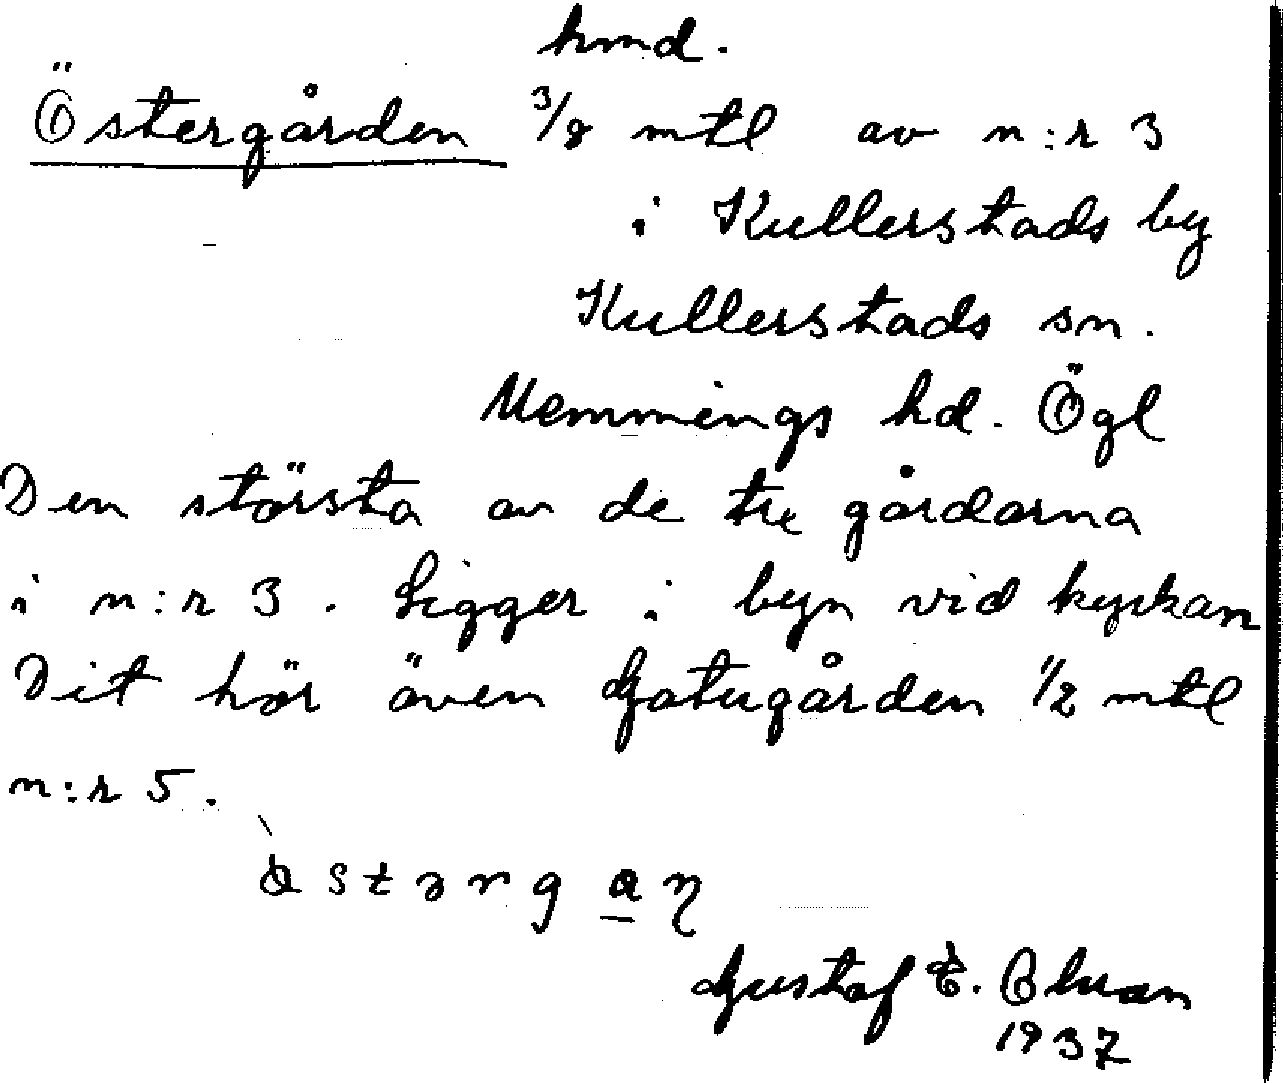 hmd.
Östergården 3/8 mtl av n:r 3
i Kullerstads by
Kullerstads sn.
Memmings hd. Ögl
Den största av de tre gårdarna
i n:r 3. Ligger i byn vid kyrkan
Dit hör även Gatugården 1/2 mtl
n:r 5.
Gustaf E.
1937